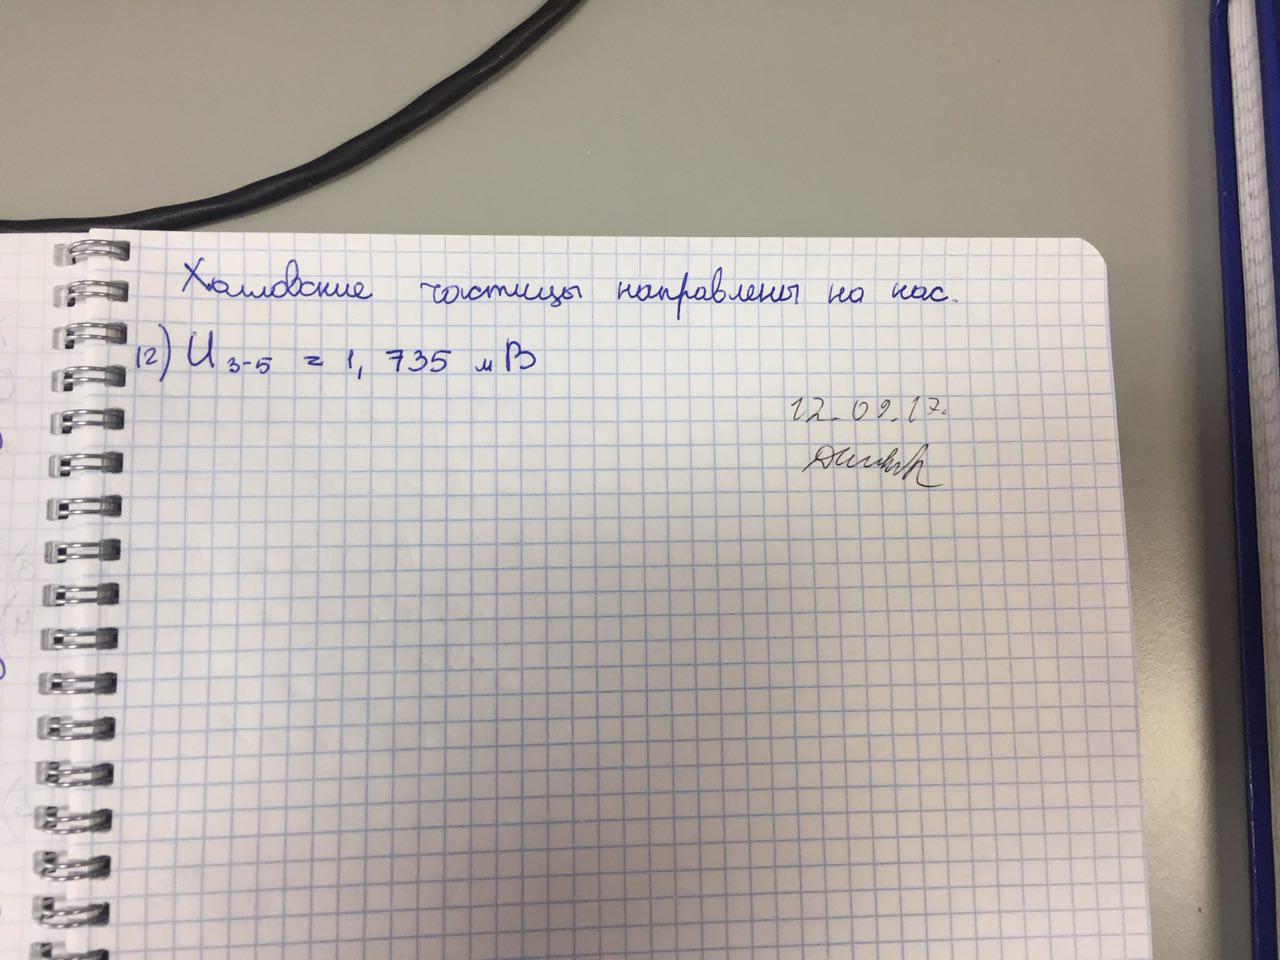 Холловские частицы направлены на нас.
12) U 3-5 = 1,735 мВ
12.09.17.